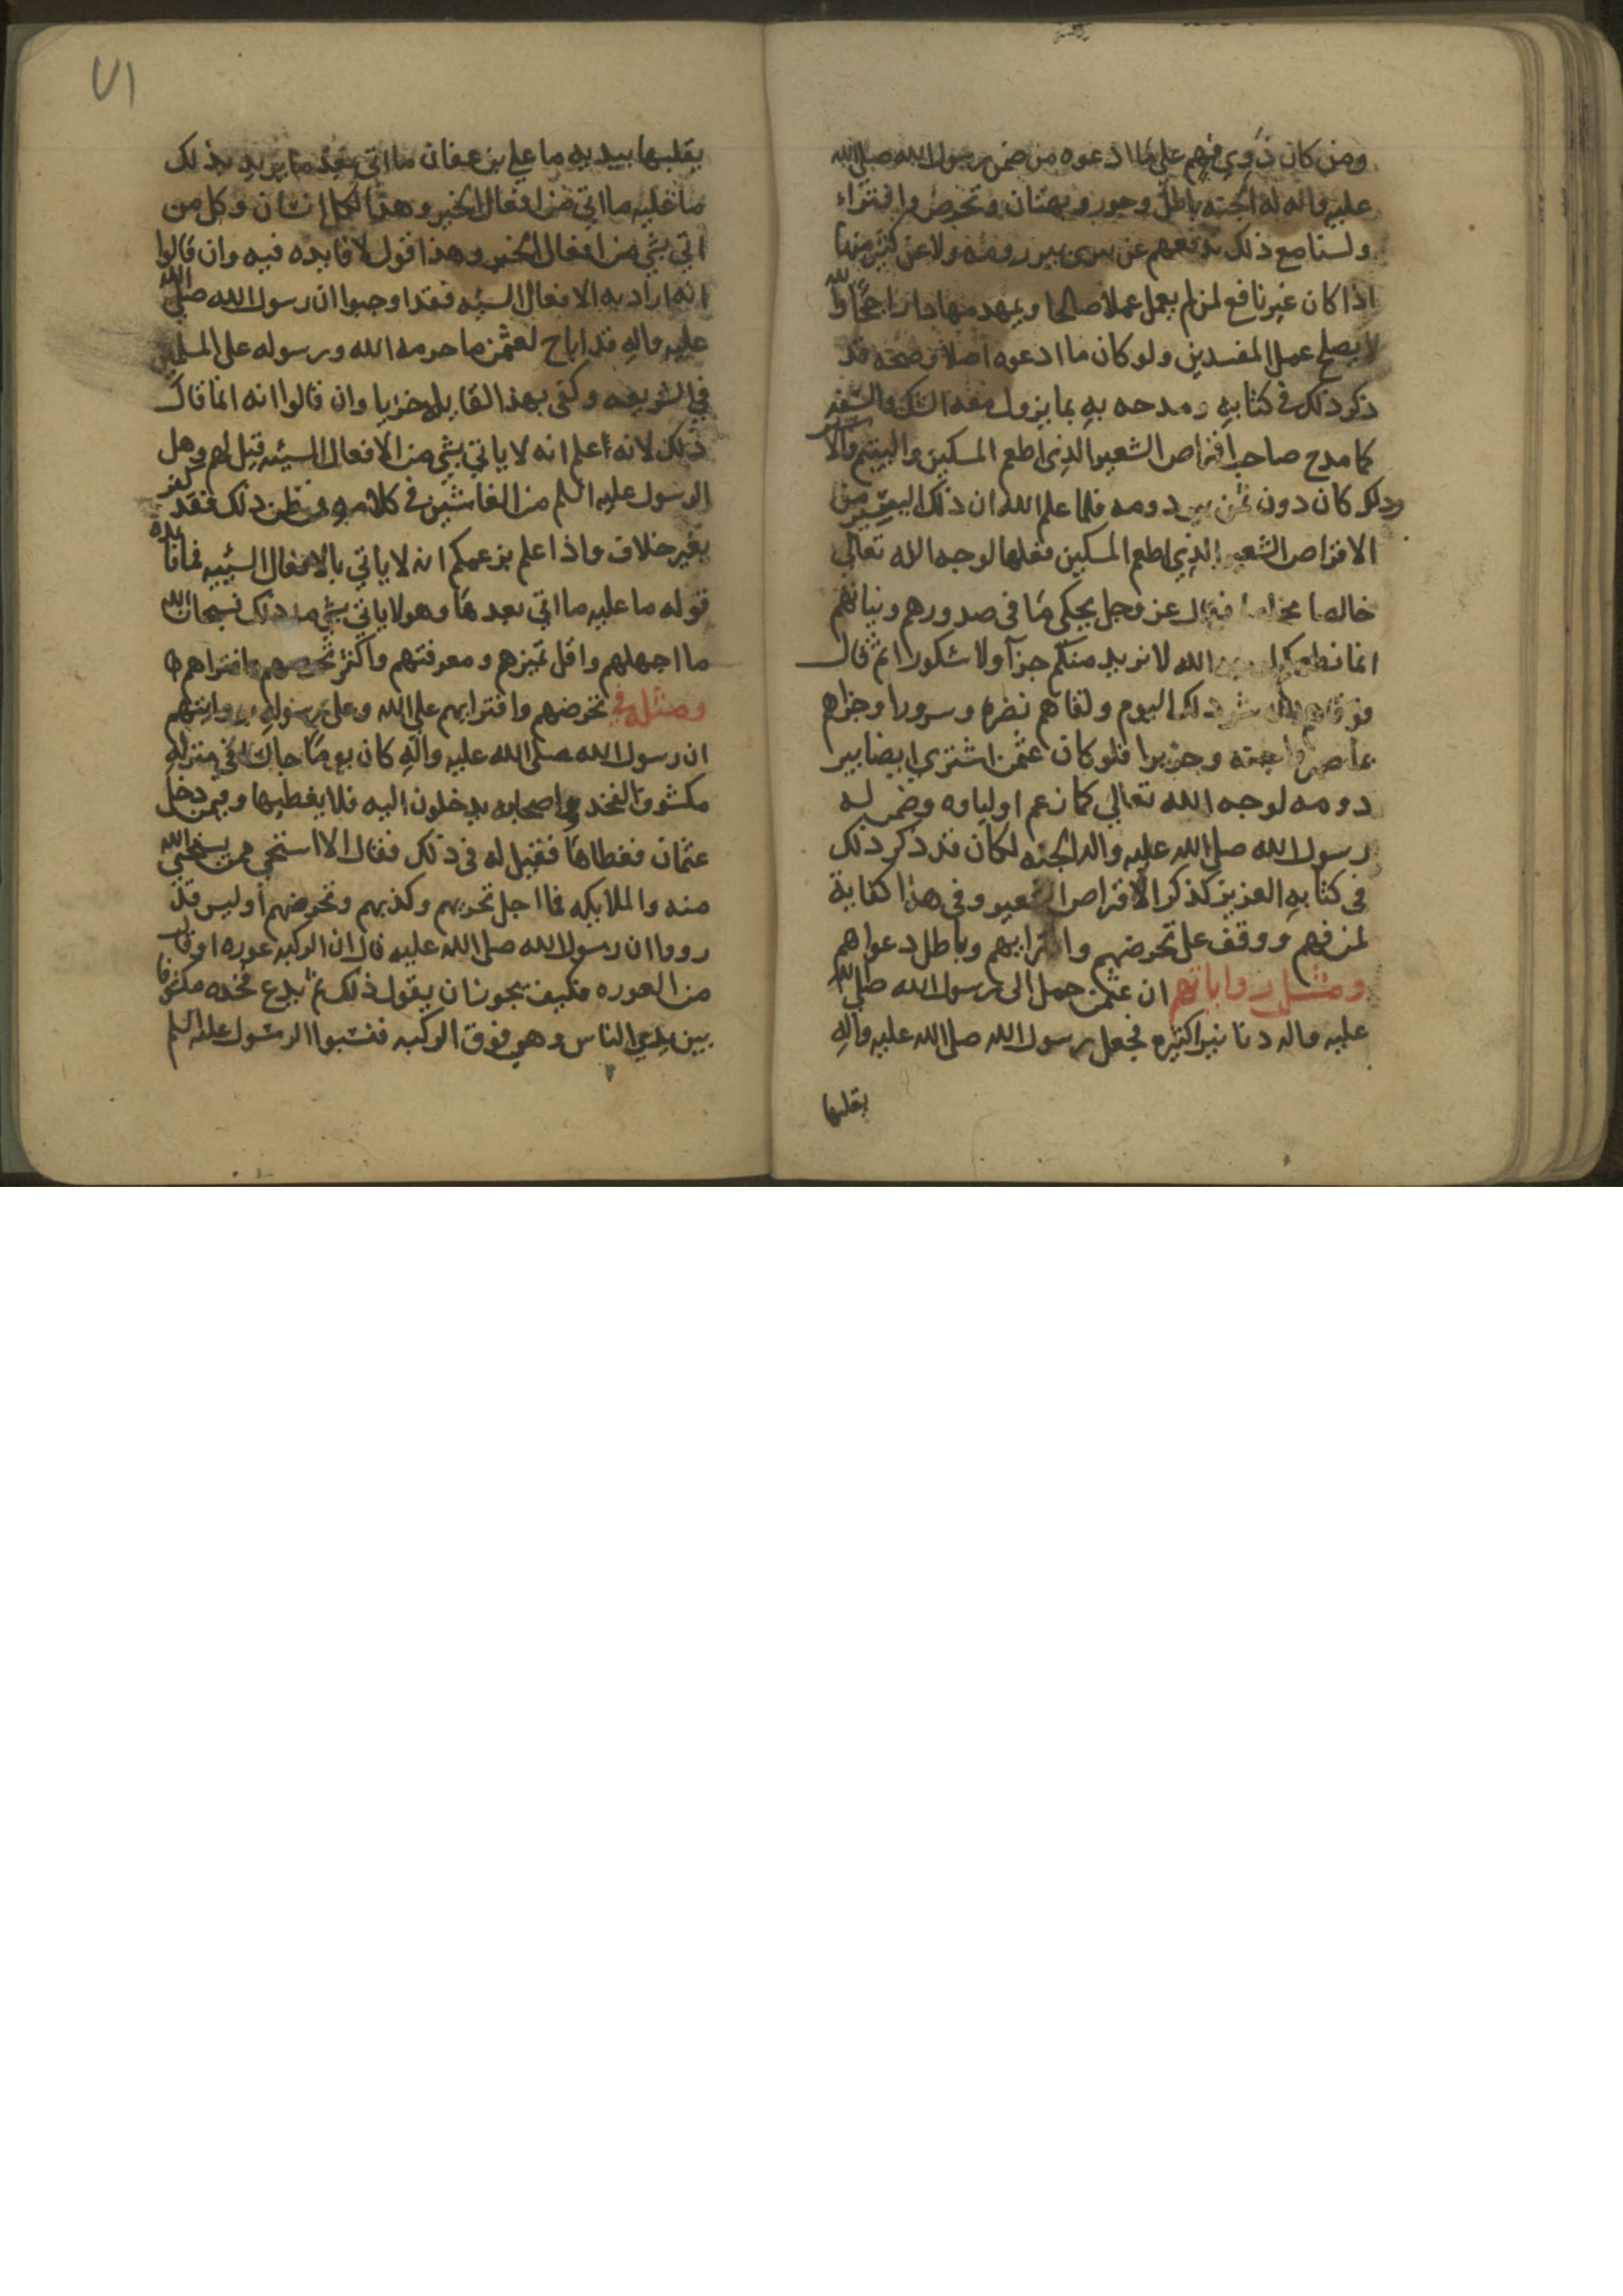 ومن كان ذوي فهم على ما ادعوه من ضمن رسول الله صلى الله
عليه واله له الجنه باطل وجور وبهتان وتخرص وافتراء
ولسنا مع ذلك ندفعهم عن سرى بير رومه ولا عن كثير منها
اذا كان غير نافع لمن لم يعمل عملا صالحا ويمهد منها دارا والله
لا يصلح عمل المفسدين ولو كان ما ادعوه اصلا وصحه قد
ذكر ذلك في كتابه ومدحه به بما يزول معه الشك
كما مدح صاحب اقراص الشعير الذي اطعم المسكين واليتيم والاسير
وذلك كان دون ثمن بير دومه فلما علم الله ان ذلك اليسير من
الاقراص الشعير الذي اطعم المسكين فعلها لوجه الله تعالى
خالصا مخلصا فقال عز وجل يحكي ما في صدورهم ونياتهم
انما نطعمكم لوجه الله لا نريد منكم جزآ ولا شكورا ثم قال
فوقاهم الله شر ذلك اليوم ولقاهم نضره وسرورا وجزاهم
بما صبروا جنه وحريرا فلو كان عثمن اشترى ايضا بير
دومه لوجه الله تعالى كما زعم اولياوه وضمن له
رسول الله صلى الله عليه واله الجنه لكان قد ذكر ذلك
في كتابه العزيز كذكر الاقراص الشعير وفي هذا كفاية
لمن فهم ووقف على تخرصهم وافترايهم وباطل دعواهم
ومثل رواياتهم ان عثمن حمل الى رسول الله صلى الله
عليه واله دنانيرا كثيره فجعل رسول الله صلى الله عليه واله
يقلبها
٧١
يقلبها بيديه ما على بن عفان ما اتى بعد ما يريد بذلك
ما عليه ما اتى من افعال الخير وهذا لكل انسان وكل من
اتى بشي من افعال الخير وهذا قول لا فايده فيه وان قالوا
انه اراد به الافعال السيئه فقد اوجبوا ان رسول الله صلى الله
عليه واله قد اباح لعثمن ما حرمه الله ورسوله على المسلمين
في الشريعه وكفى بهذا القايل خزيا وان قالوا انه انما قال
ذلك لانه اعلم انه لا ياتي بشي من الافعال السيئه قيل لهم وهل
الرسول عليه السلم من الغاشين في كلامه فمن ظن ذلك فقد كفر
بغير خلاف واذا علم بزعمكم انه لا ياتي بالافعال السيئه فما فايدة
قوله ما عليه ما اتى بعدها وهو لا ياتي بشي من ذلك فسبحان الله
ما اجهلهم واقل تميزهم ومعرفتهم واكثر تخرصهم وافتراهم
ومثله في تخرصهم وافترايهم على الله وعلى رسوله روايتهم
ان رسول الله صلى الله عليه واله كان يوما جالسا في منزله
مكشوف الفخذ واصحابه يدخلون اليه فلا يغطيها وفيمن دخل
عثمان فغطاها فقيل له في ذلك فقال الا استحي ممن يستحي الله
منه والملايكه فما اجل تحريهم وكذبهم وتخرصهم أوليس قد
رووا ان رسول الله صلى الله عليه قال ان الركبه عوره او قال
من العوره فكيف يجوز ان يقول ذلك ثم يدع فخذه مكشوفا
بين يدي الناس وهي فوق الركبه فنسبوا الرسول عليه السلم